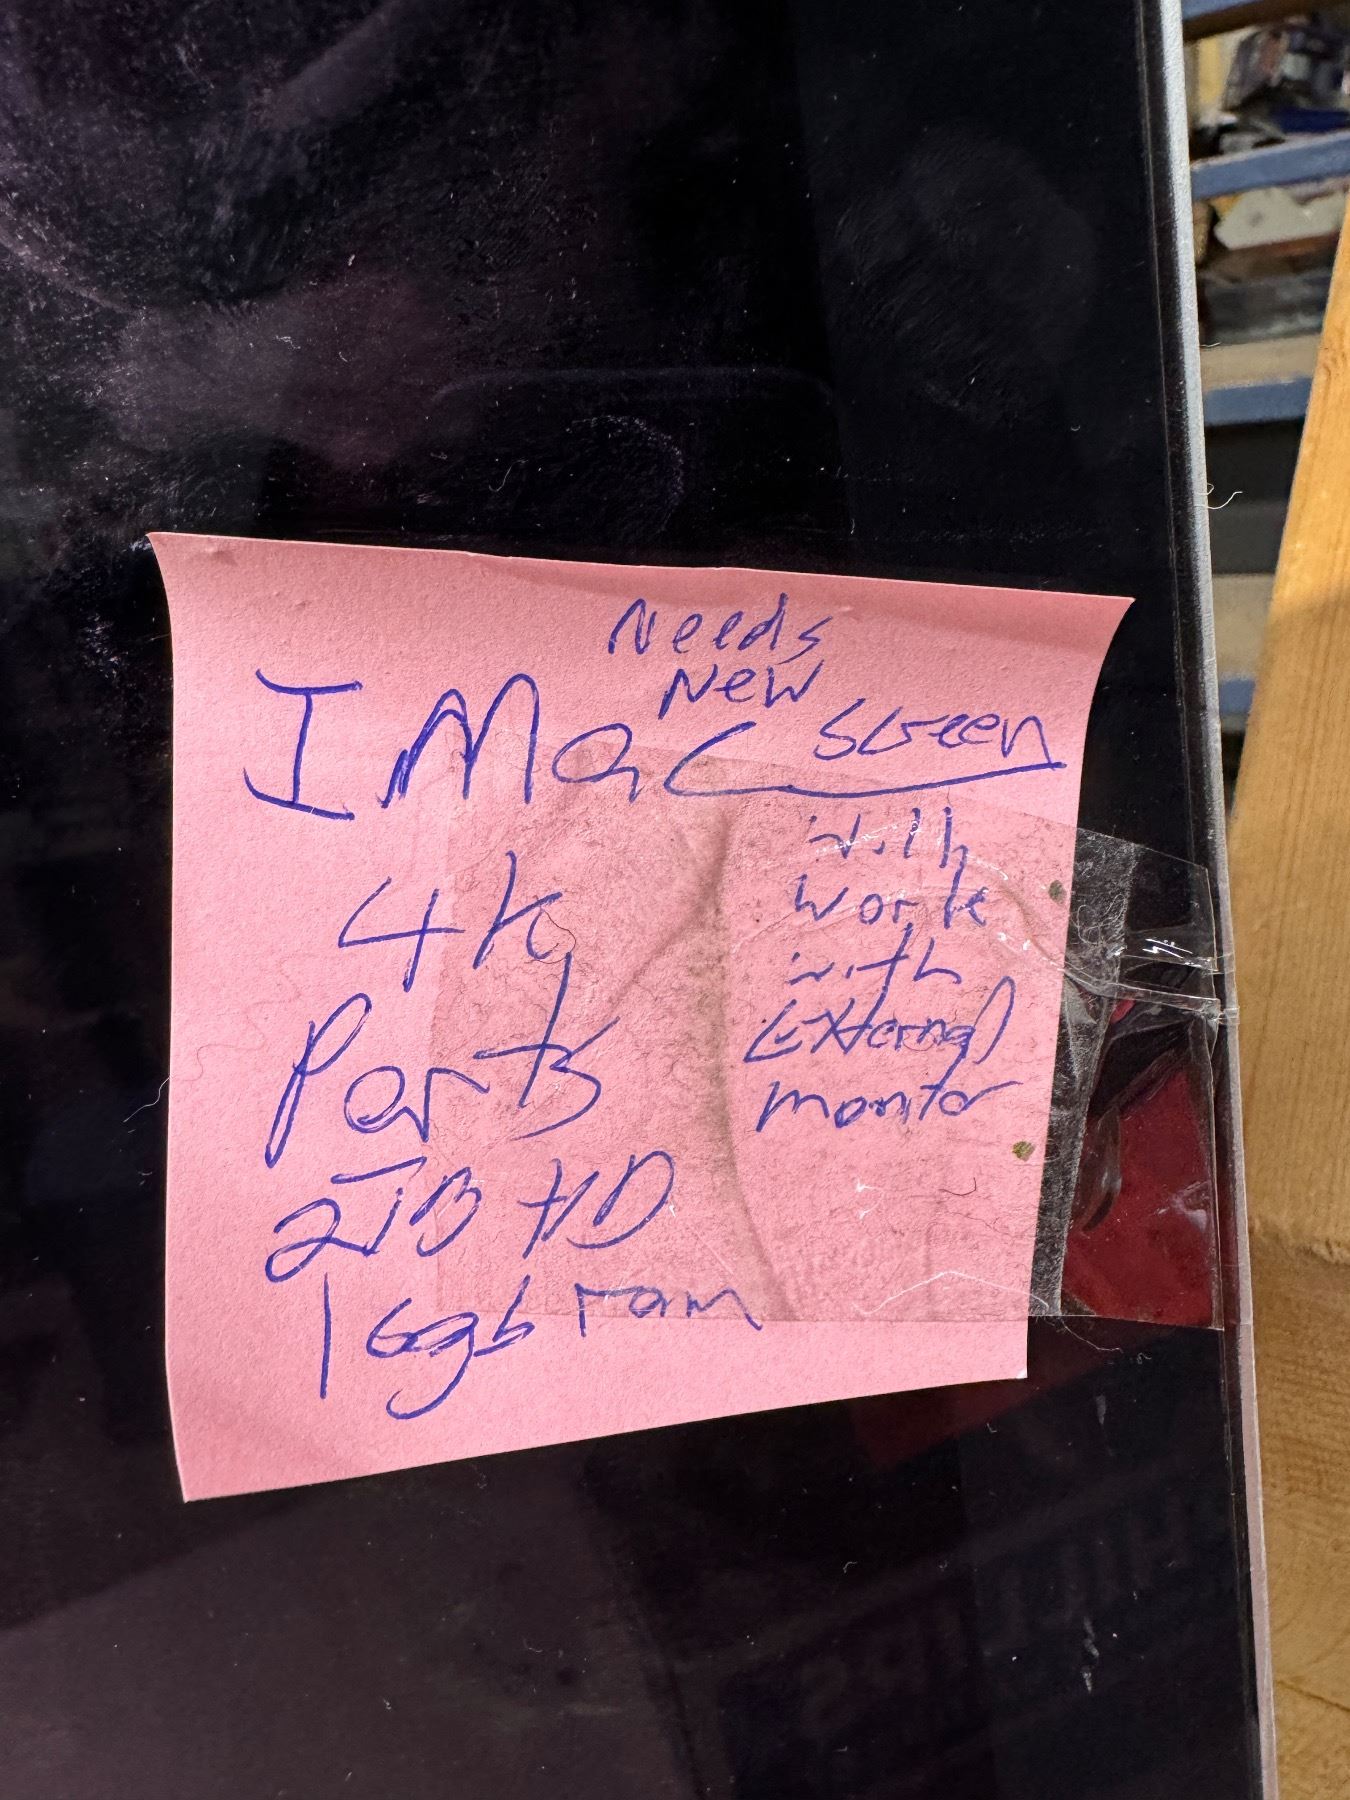 Needs
New
IMac screen
4k
Ports
2TB HD
16gb ram
will
work
with
External
monitor